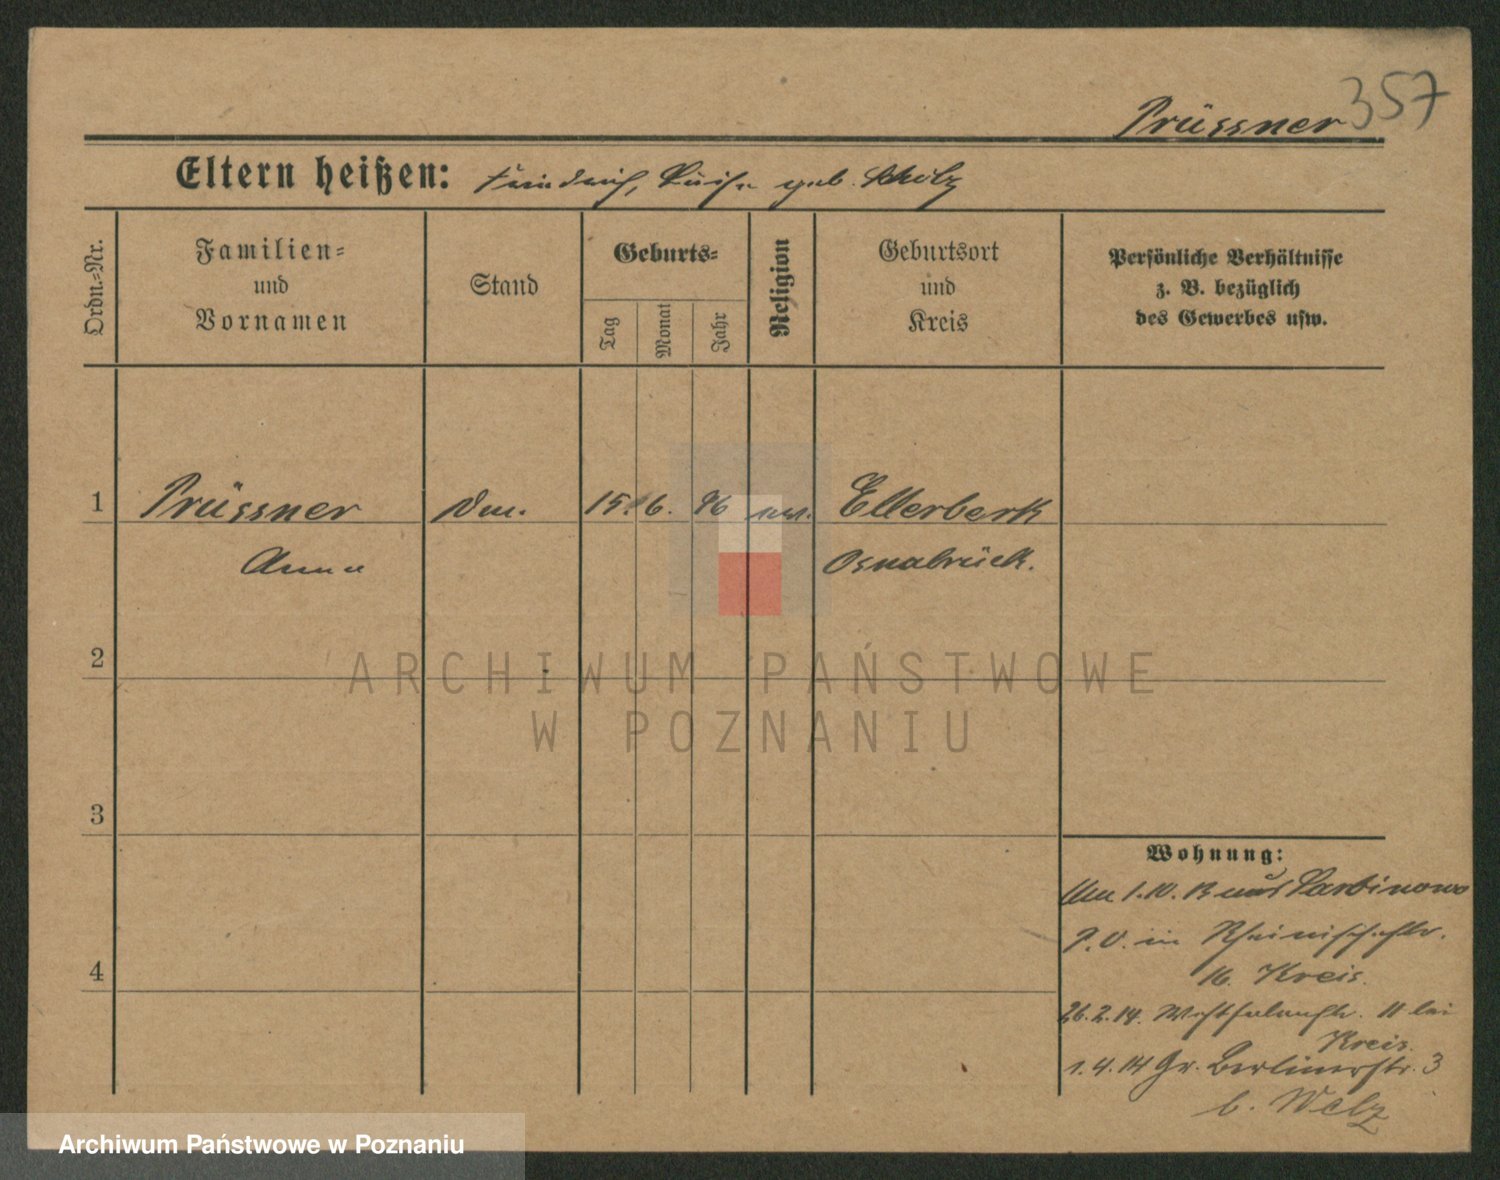 Prüssner 357
Eltern heißen: Friedrich, Luise geb. Scholz
Ordn.-Nr.
Familien-
und
Vornamen
Stand
Geburts-
Tag
Monat
Jahr
Religion
Geburtsort
und
Kreis
Persönliche Verhältnisse
z. B. bezüglich
des Gewerbes usw.
1 Prüssner 15. 6. 96 Ellerbeck
Anna Osnabrück.
2
3
4
Wohnung:
1.10.13 aus
P. O. in
16. Kreis.
26.2.14. 11 bei
Kreis.
1.4.14 Gr. Berlinerstr. 3
b. Welz
ARCHIWUM PAŃSTWOWE
W POZNANIU
Archiwum Państwowe w Poznaniu